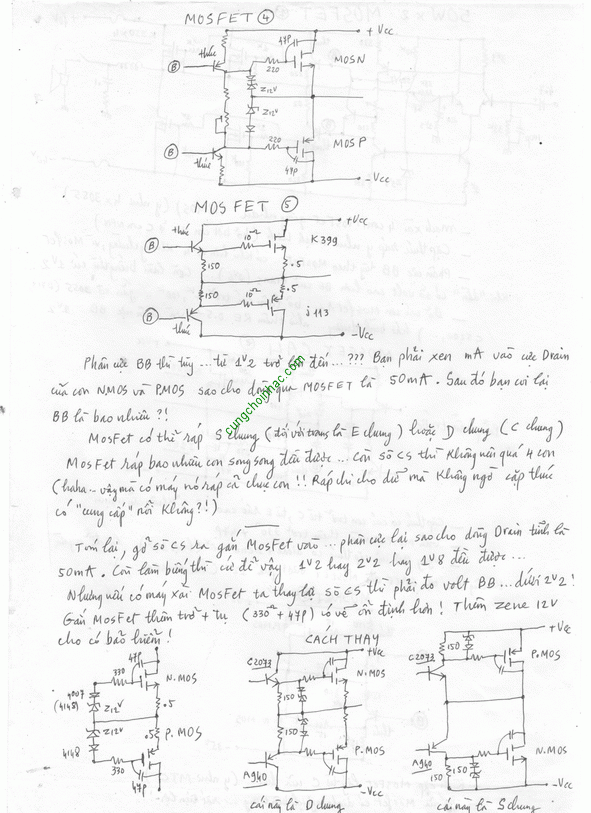 MOSFET ④
+Vcc
thúc
47P
B
220
MOS N
Z12V
Z12V
220
MOS P
B
thúc
47P
-Vcc
MOSFET ⑤
+Vcc
thúc
B
10Ω
K399
150
.5
150
.5
10Ω
J113
B
thúc
-Vcc
Phân cực BB thì tùy ... từ 1V2 trở lên đến ... ??? Bạn phải xen mA vào cực Drain
của con NMOS và PMOS sao cho dòng qua MOSFET là 50mA. Sau đó bạn coi lại
BB là bao nhiêu ?!
cungchoinhac.com
MosFet có thể ráp S chung (đối với trans là E chung) hoặc D chung (C chung)
MosFet ráp bao nhiêu con song song đều được ... còn sò CS thì không nên quá 4 con
(haha.. vậy mà có máy nó ráp cả chục con !! Ráp chi cho dữ mà không ngờ cặp thúc
có "cung cấp" nổi không ?!)
Tóm lại, gỡ sò CS ra gắn MosFet vào ... phân cực lại sao cho dòng Drain tĩnh là
50mA. Còn làm biếng thì cứ để vậy 1V2 hay 2V2 hay 1V8 đều được ...
Nhưng nếu có máy xài MosFet ta thay lại sò CS thì phải đo volt BB ... dưới 2V2 !
Gắn MosFet thêm trở + tụ (330Ω + 47P) có vẻ ổn định hơn ! Thêm zene 12V
cho có bảo hiểm !
CÁCH THAY
47P
330
N.MOS
4007
(4148)
Z12V
.5
Z12V
.5
P.MOS
4148
330
47P
+Vcc
C2073
N.MOS
150
150
P.MOS
A940
-Vcc
cái này là D chung
+Vcc
150
C2073
P.MOS
A940
150
150
N.MOS
-Vcc
cái này là S chung